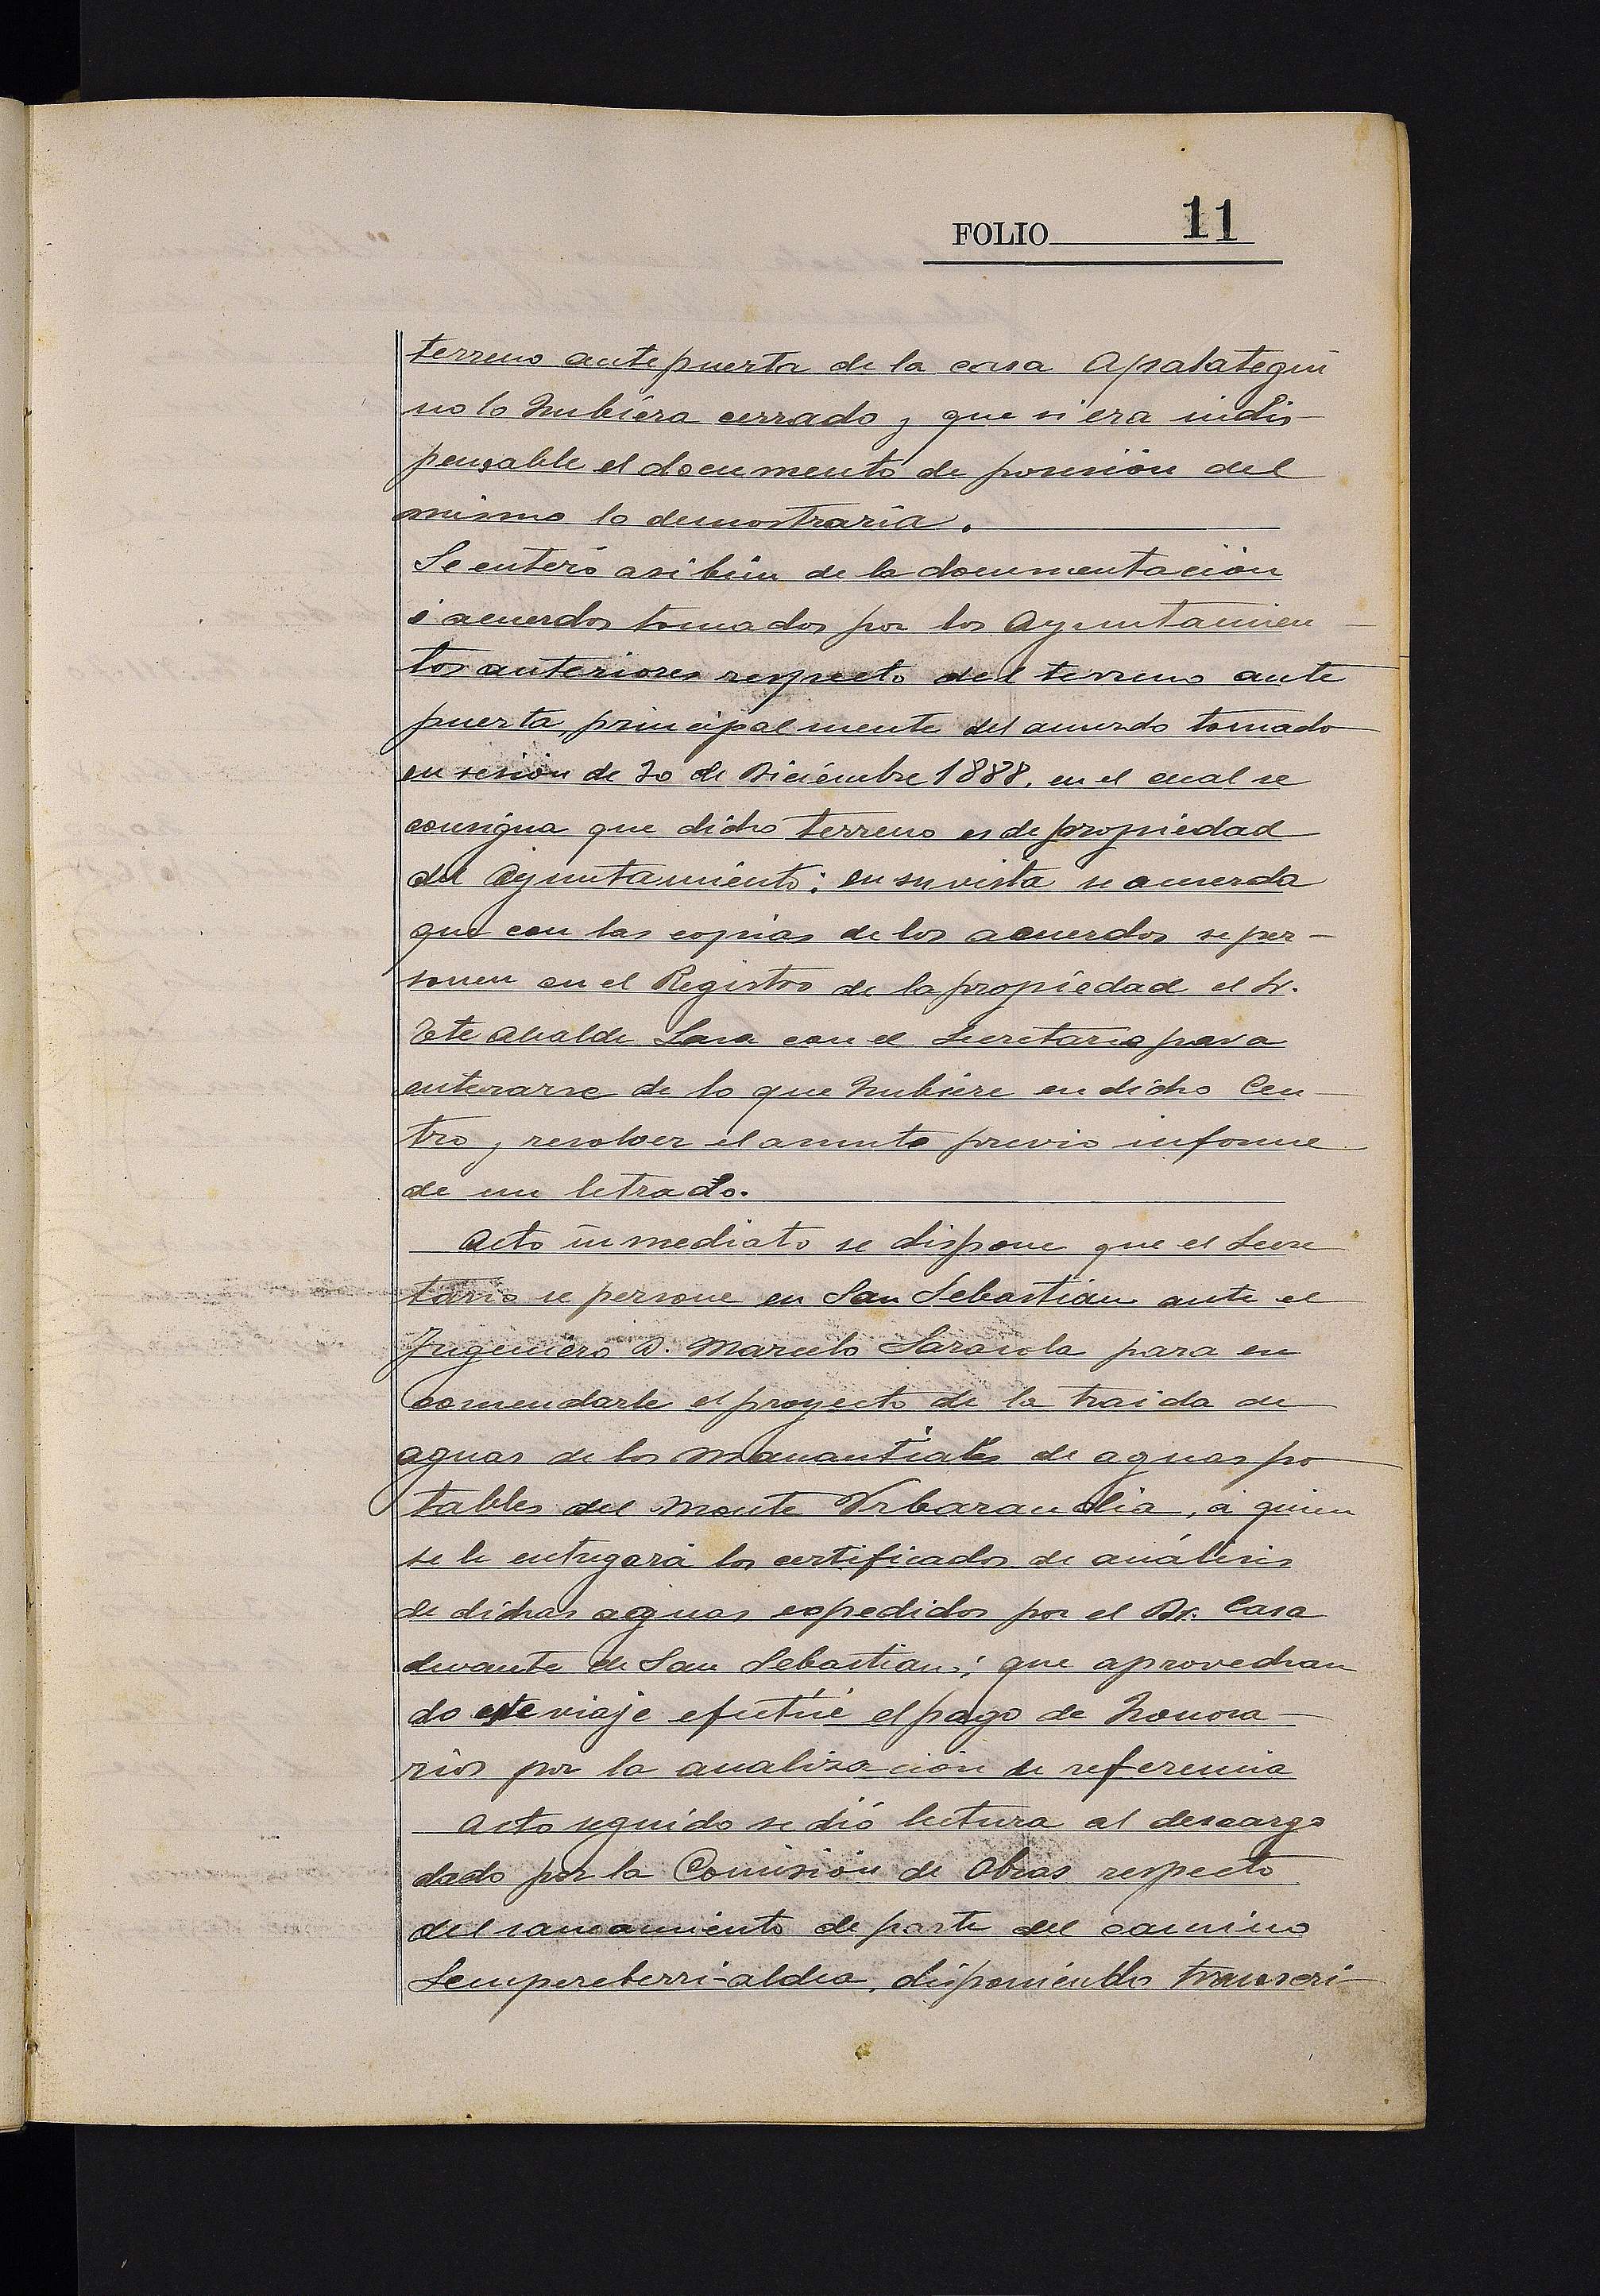 FOLIO 11
terreno antepuerta de la casa Apalategui
no lo hubiera cerrado y que si era indis-
pensable el documento de posesión del
mismo lo demostraria.
Se enteró asi bien de la documentación
é acuerdos tomados por los Ayuntamien-
tos anteriores respecto del terreno ante
puerta, principalmente del acuerdo tomado
en sesión de 30 de Diciembre 1888. en el cual se
consigna que dicho terreno es de propiedad
del Ayuntamiento: en su vista se acuerda
que con las copias de los acuerdos se per-
sonen en el Registro de la propiedad el Sr.
Tte Alcalde Lasa con el Secretario para
enterarse de lo que hubiere en dicho Cen-
tro y resolver el asunto previo informe
de un letrado.
Acto inmediato se dispone que el Secre
tario se persone en San Sebastián ante el
Ingeniero D. Marcelo Sarasola para en
comendarle el proyecto de la traida de
aguas de los manantiales de aguas po
tables del monte Urbarandia, á quien
se le entregará los certificados de análisis
de dichas aguas expedidos por el Dr. Casa
devante de San Sebastian; que aprovechan
do este viaje efectúe el pago de honora-
rios por la analización de referencia
Acto seguido se dió lectura al descargo
dado por la Comisión de Obras respecto
del saneamiento de parte del camino
Sempereberri-aldea, disponiendo transcri-